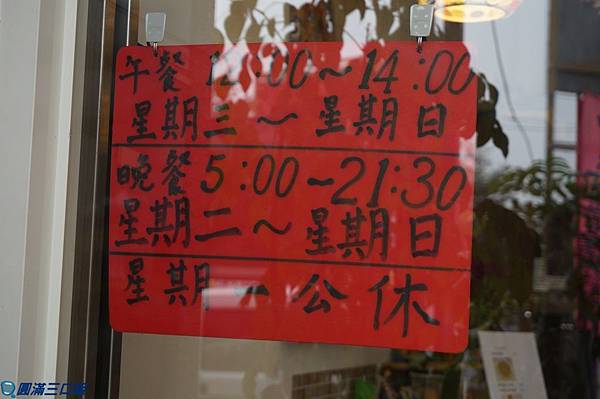 午餐 12:00～14:00
星期三～星期日
晚餐 5:00～21:30
星期二～星期日
星期一公休
圓滿三口組